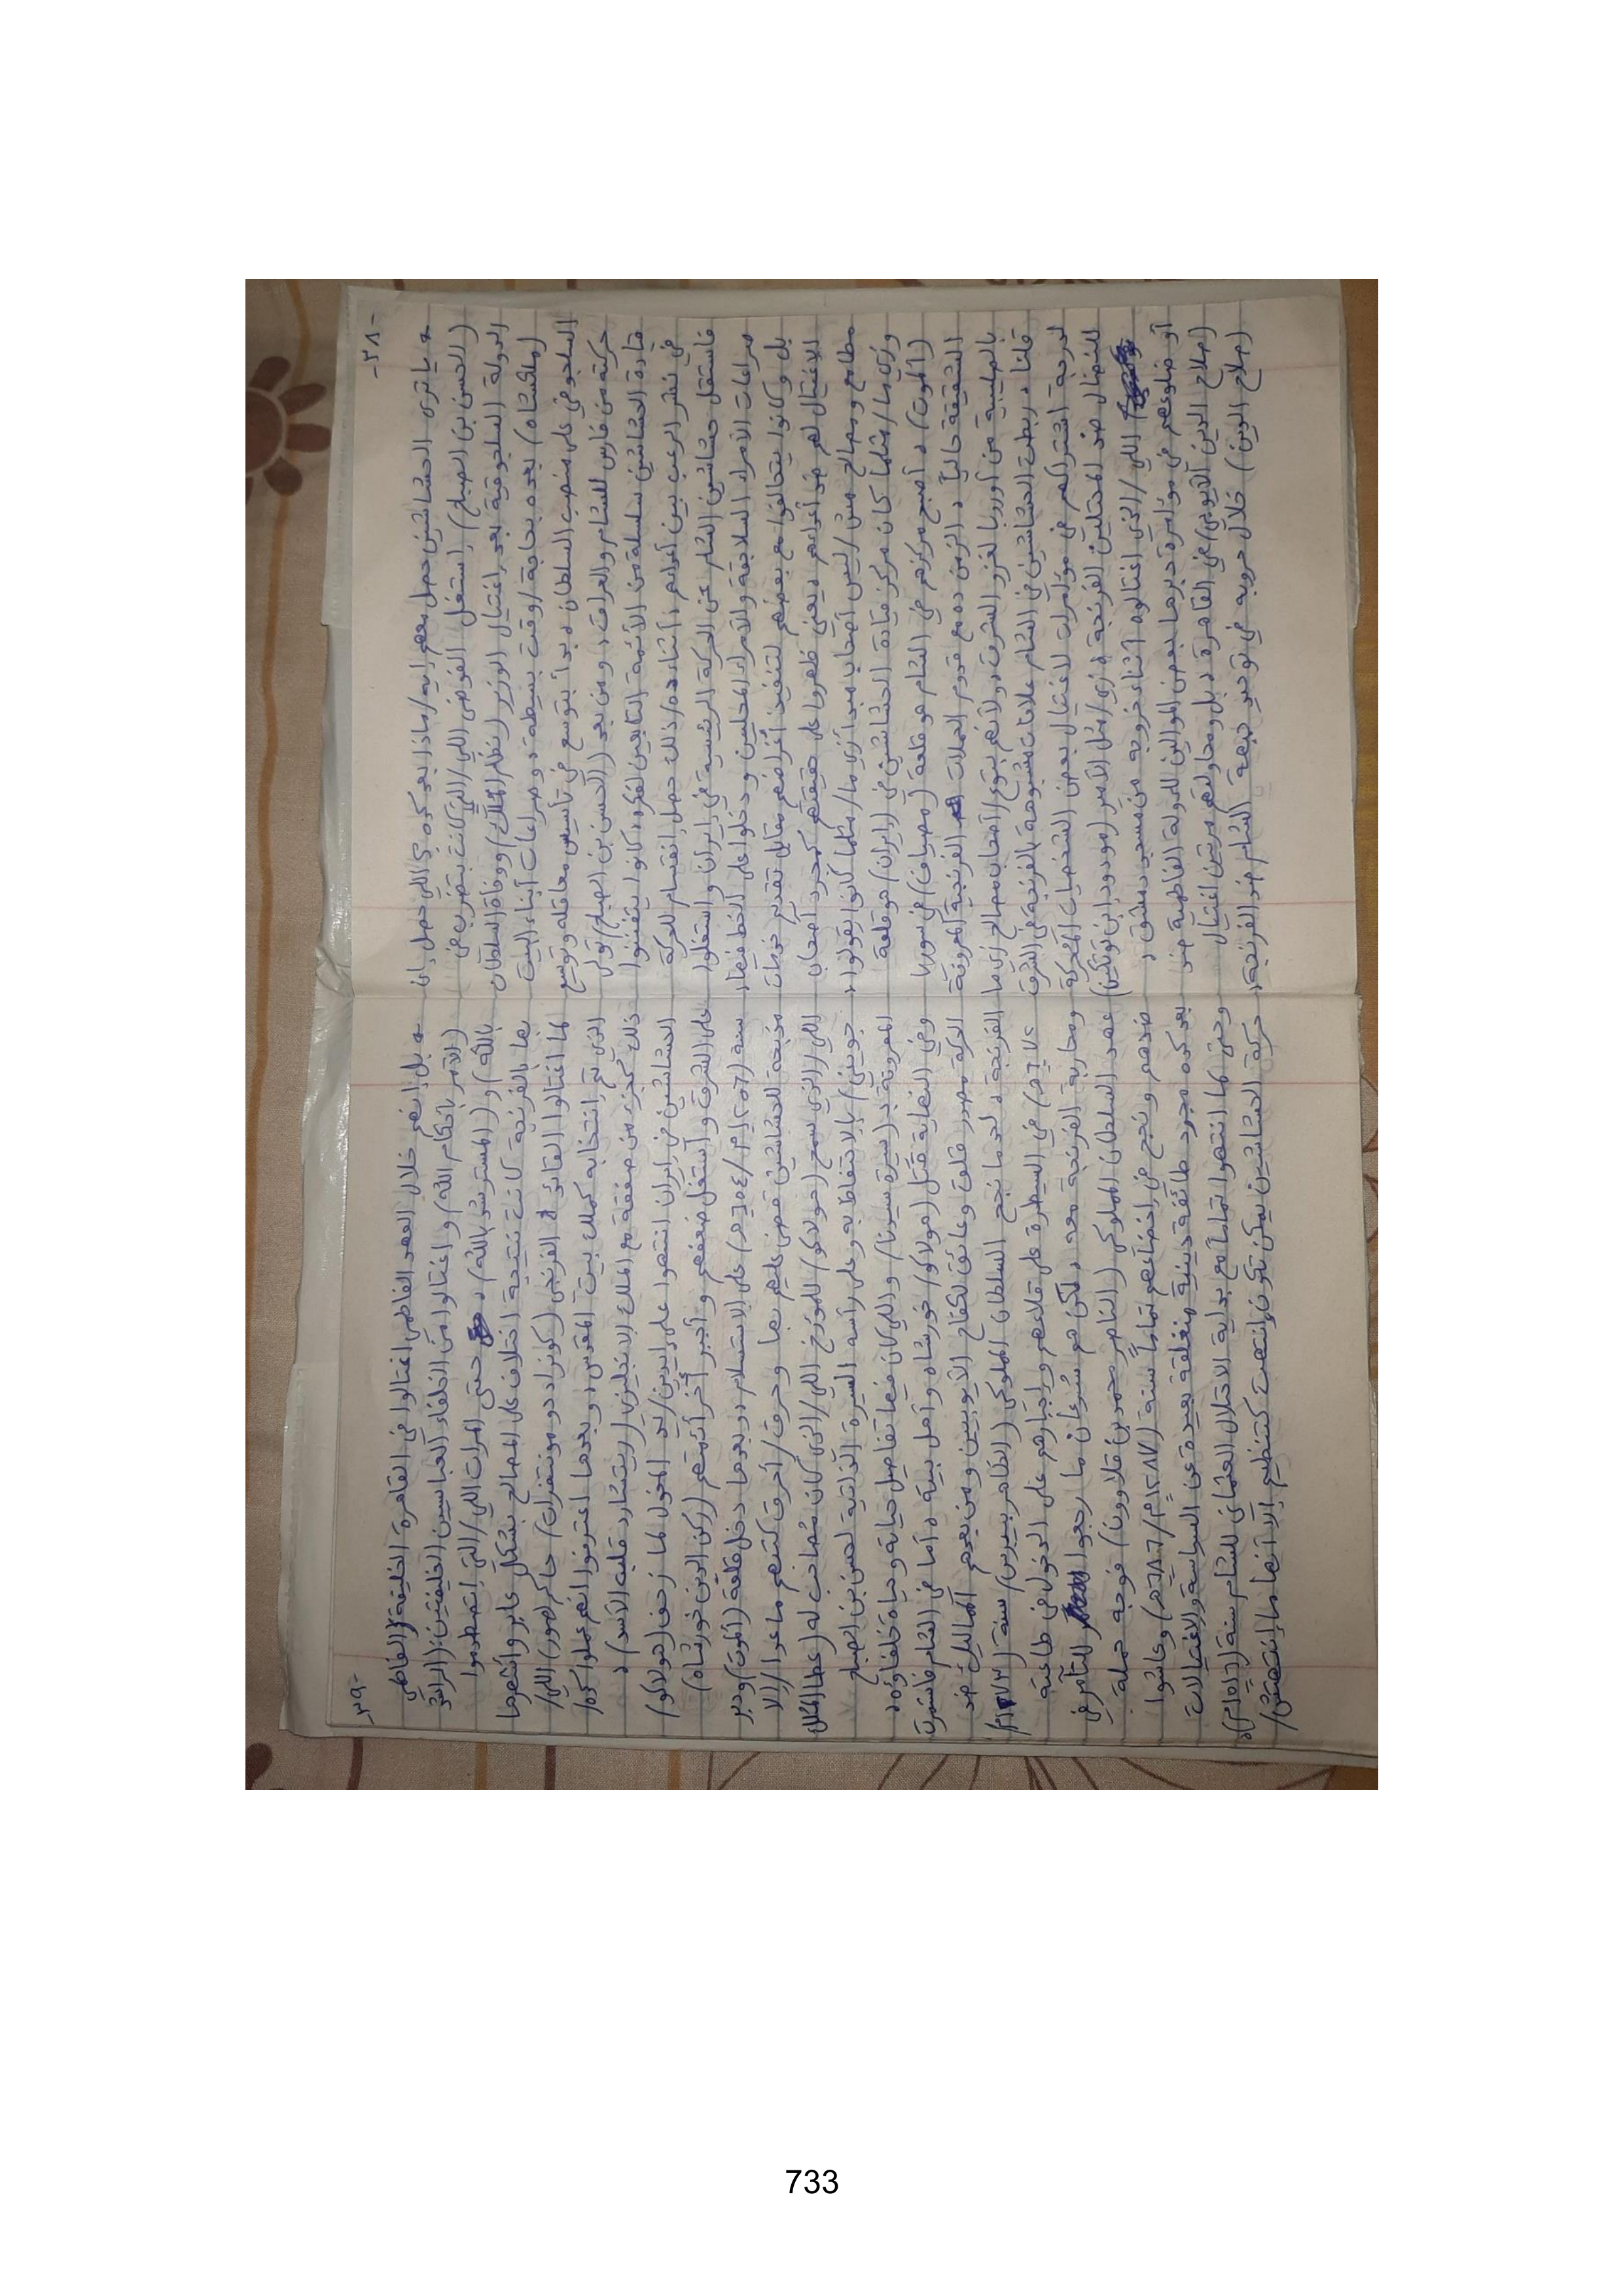 -٣٨-
* يا ترى الحشاشين حصل معهم إيه/ماذا بعد كده ؟ اللي حصل إن
(الحسن بن الصباح) استغل الفوضى اللي/التي كانت بتضرب في
الدولة السلجوقية بعد اغتيال الوزير (نظام الملك) ووفاة السلطان
(ملكشاه) بعده بحاجة/وقت بسيطة، وصراعات أبناء البيت
السلجوقي على منصب السلطان، بدأ بتوسع في تأسيس معاقله وتوسع
حركته من فارس للشام والعراق، ومن بعد (الحسن بن الصباح) تولى
قيادة الحشاشين سلسلة من الأئمة التابعين لفكره، كانوا بيتفننوا
في نشر الرعب بين أعدائهم، أثناء ده/ذلك حصل انقسام للحركة
فاستقل حشاشين الشام عن الحركة الرئيسية في إيران واستغلوا
صراعات الأمراء السلاجقة والأمراء المحليين ودخلوا على الخط فيها،
بل وكانوا بيتحالفوا مع بعضهم لتنفيذ أغراضهم مقابل تقديم خدمات
الاغتيال لهم ضد أعدائهم، يعني ظهروا على حقيقتهم كمجرد أصحاب
مطامع ومصالح مش/ليس أصحاب مبدأ زي ما/مثلما كانوا بيقولوا،
وزي ما/مثلما كان مركز قيادة الحشاشين في (إيران) هو قلعة
(ألموت)، أصبح مركزهم في الشام هو قلعة (مصياف) في سوريا
الشقيقة حالياً، الزمن ده مع قدوم الحملات الفرنجية المعروفة
بالصليبية من أوروبا لغزو الشرق، ولأنهم بتوع/أصحاب مصالح زي ما
قلنا، ربطت الحشاشين في الشام علاقات مشبوهة بالفرنجة في الشرق
لدرجة اشتراكهم في مؤامرات لاغتيال بعض الشخصيات المحركة
للنضال ضد المحتلين الفرنجة، زي/مثل الأمير (مودود بن توتكين)
اللي/الذي اغتالوه أثناء خروجه من مسجد دمشق،
أو ضلوعهم في مؤامرة دبرها بعض الموالين للدولة الفاطمية ضد
(صلاح الدين الأيوبي) في القاهرة، بل ومحاولتهم مرتين اغتيال
(صلاح الدين) خلال حروبه في توحيد جبهة الشام ضد الفرنجة،
-٣٩-
* بل إنهم خلال العهد الفاطمي اغتالوا في القاهرة الخليفة الفاطمي
(الآمر بأحكام الله) واغتالوا من الخلفاء العباسيين الخليفتين: (الراشد
بالله) و(المسترشد بالله)، حتى المرات اللي/التي اتصطدموا
بها بالفرنجة كانت نتيجة اختلاف على المصالح بشكل عابر وأشهرها
لما اغتالوا القائد الفرنجي (كونراد دو مونتفرات) حاكم (صور) اللي/
الذي تم انتخابه كملك بيت المقدس، وبعدها اعترفوا أنهم عملوا كده/
ذلك كجزء من صفقة مع الملك الإنجليزي (ريتشارد قلب الأسد)،
الحشاشين في إيران انتهوا على إيدين/يد المغول لما زحف (هولاكو)
على الشرق واستغل ضعفهم وأجبر آخر أئمتهم (ركن الدين خورشاه)
سنة (١٢٥٦م/٦٥٤هـ) على الاستسلام، وبعدها دخل قلعة (ألموت) ودبر
مذبحة للحشاشين قضى عليهم بها وحرق/أحرق كتبهم ما عدا/إلا
اللي/الذي سمح (هولاكو) للمؤرخ اللي/الذي كان مُصاحب له (عطا الملك
جويني) بالاحتفاظ به وعلى رأسه السيرة الذاتية لحسن بن الصباح
المعروفة بـ(سيرة سيدنا) واللي كان فيها تفاصيل حياته وحياة خلفاؤه،
وفي النهاية قتل (هولاكو) خورشاه وأهل بيته، أما في الشام فاستمرت
الحركة مصدر قلق وعائق لكفاح الأيوبيين ومن بعدهم المماليك ضد
الفرنجة، لحد ما نجح السلطان المملوكي (الظاهر بيبرس) سنة (١٢٧٣م/
٦٧١هـ) في السيطرة على قلاعهم وإجبارهم على الدخول في طاعته
ومحاربة الفرنجة معه، لكن هم سُرعان ما رجعوا للتآمر في
عهد السلطان المملوكي (الناصر محمد بن قلاوون) فوجه حملة
ضدهم ونجح في إخضاعهم تماماً سنة (١٢٨٧م/٦٨٦هـ) وعاشوا
بعد كده مجرد طائفة دينية منغلقة بعيدة عن السياسة والاغتيالات
وحتى لما انتهوا تماماً مع بداية الاحتلال العثماني للشام سنة (١٥١٦م)،
حركة الحشاشين يمكن تكون انتهت كتنظيم إلا أنها ما إنتهتش/
733